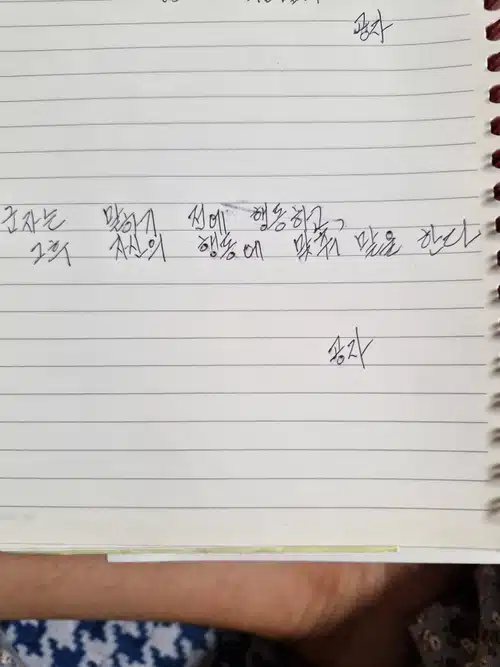 공자
군자는 말하기 전에 행동하고,
그의 자신의 행동에 맞춰 말을 한다
공자